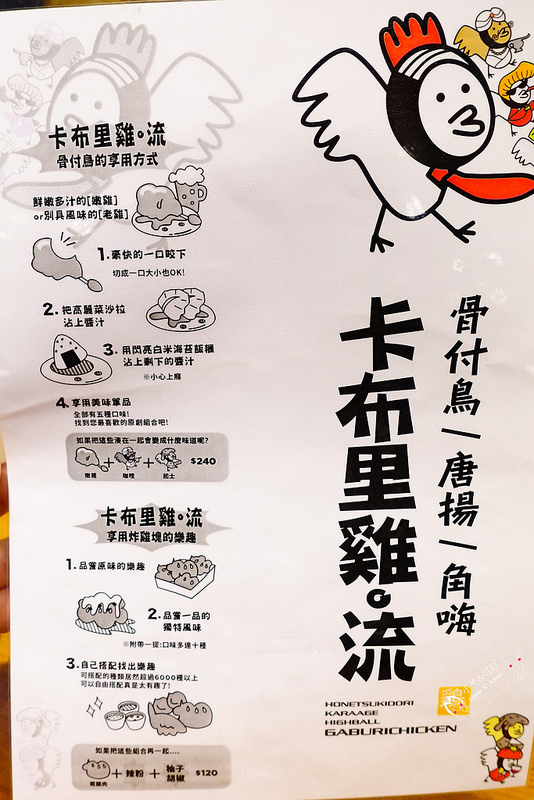 卡布里雞。流
骨付鳥的享用方式
鮮嫩多汁的[嫩雞]
or別具風味的[老雞]
1.豪快的一口咬下
切成一口大小也OK!
2.把高麗菜沙拉
沾上醬汁
3.用閃亮白米海苔飯糰
沾上剩下的醬汁
※小心上癮
4.享用美味單品
全部有五種口味!
找到您最喜歡的原創組合吧!
如果把這些湊在一起會變成什麼味道呢?
嫩雞 + 咖哩 + 起士 $240
卡布里雞。流
享用炸雞塊的樂趣
1.品嘗原味的樂趣
2.品嘗一品的
獨特風味
※附帶一提:口味多達十種
3.自己搭配找出樂趣
可搭配的種類居然超過6000種以上
可以自由搭配真是太有趣了!
如果把這些組合再一起....
雞腿肉 + 辣粉 + 柚子胡椒 $120
骨付鳥 | 唐揚 | 角嗨
卡布里雞。流
HONETSUKIDORI
KARAAGE
HIGHBALL
GABURICHICKEN